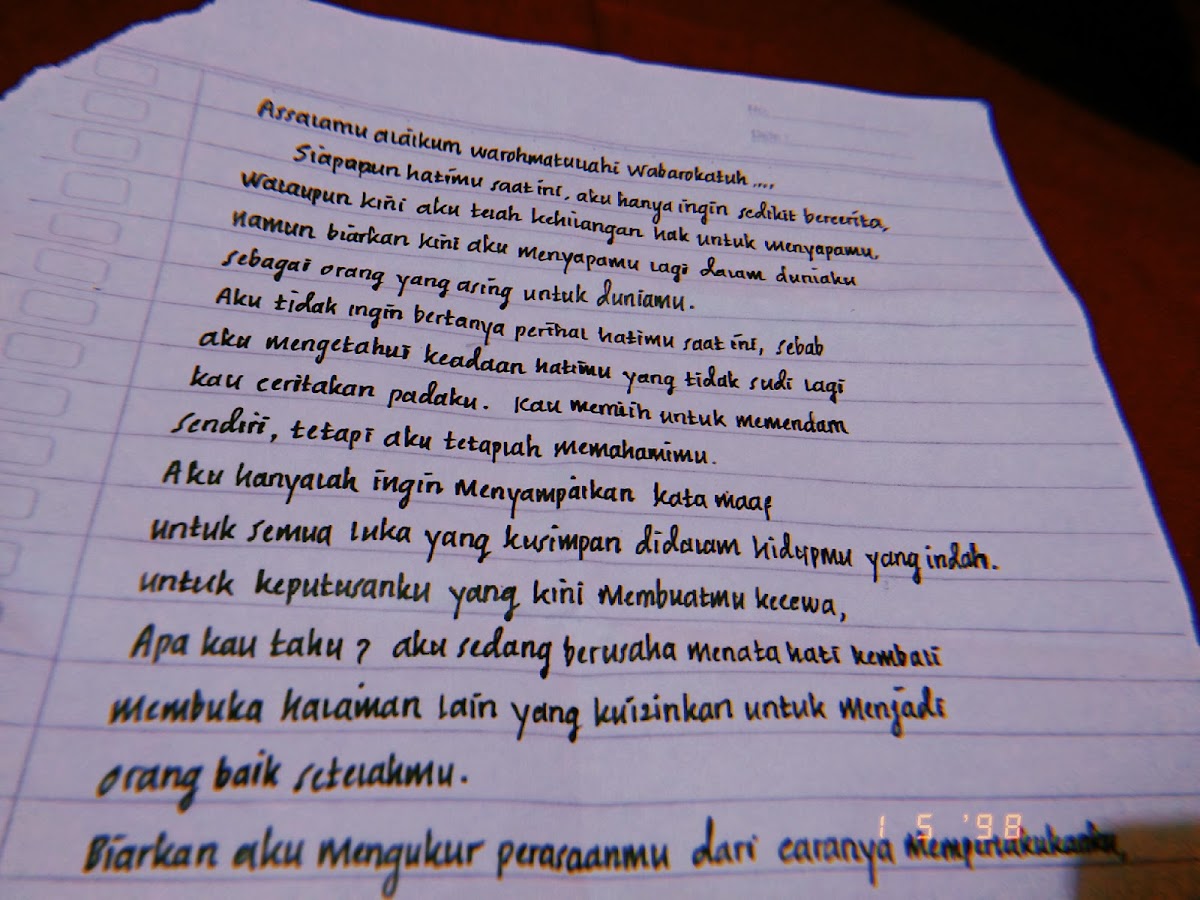 Assalamu alaikum warohmatullahi wabarokatuh....
Siapapun hatimu saat ini, aku hanya ingin sedikit bercerita,
Walaupun kini aku telah kehilangan hak untuk menyapamu,
namun biarkan kini aku menyapamu lagi dalam duniaku
sebagai orang yang asing untuk duniamu.
Aku tidak ingin bertanya perihal hatimu saat ini, sebab
aku mengetahui keadaan hatimu yang tidak sudi lagi
kau ceritakan padaku. Kau memilih untuk memendam
sendiri, tetapi aku tetaplah memahamimu.
Aku hanyalah ingin menyampaikan kata maaf
untuk semua luka yang kusimpan didalam hidupmu yang indah.
untuk keputusanku yang kini membuatmu kecewa,
Apa kau tahu? aku sedang berusaha menata hati kembali
membuka halaman lain yang kuizinkan untuk menjadi
orang baik setelahmu.
Biarkan aku mengukur perasaanmu dari caranya memperlakukanku,
1 5 '98